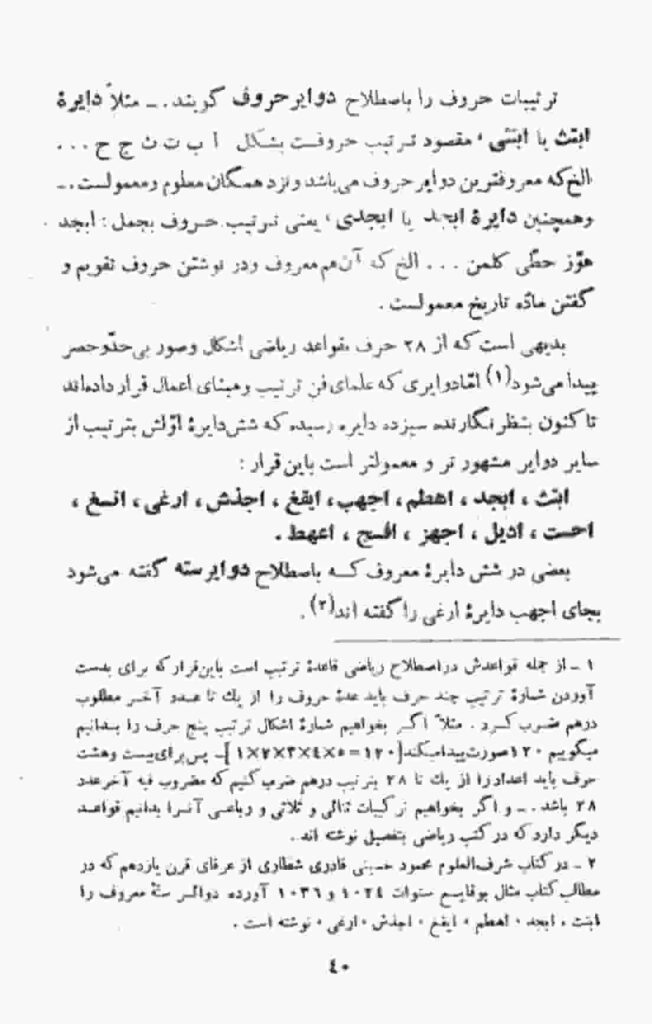 ترتیبات حروف را باصطلاح دوایر حروف گویند . ـ مثلاً دایرهٔ
ابتث یا ابتثی ، مقصود ترتیب حروفست بشکل ا ب ت ث ج ح ...
الخ که معروفترین دوایر حروف می‌باشد و نزد همگان معلوم و معمولست . ـ
و همچنین دایرهٔ ابجد یا ابجدی ، یعنی ترتیب حروف بجمل : ابجد
هوّز حطّی کلمن ... الخ که آن هم معروف و در نوشتن حروف تقویم و
گفتن مادّه تاریخ معمولست .
بدیهی است که از ۲۸ حرف بقواعد ریاضی اشکال و صور بی‌حدّ و حصر
پیدا می‌شود (۱) امّا دوایری که علمای فن ترتیب و مبنای اعمال قرار داده‌اند
تا کنون بنظر نگارنده سیزده دایره رسیده که شش دایرهٔ اوّلش بترتیب از
سایر دوایر مشهور تر و معمولتر است باین قرار :
ابتث ، ابجد ، اهطم ، اجهب ، ایقغ ، اجذش ، ارغی ، انسغ ،
احست ، ادیل ، اجهز ، افسج ، اعهط .
بعضی در شش دایرهٔ معروف که باصطلاح دوایر سته گفته می‌شود
بجای اجهب دایرهٔ ارغی را گفته اند (۲) .
۱ ـ از جمله قواعدش در اصطلاح ریاضی قاعدهٔ ترتیب است باین قرار که برای بدست
آوردن شمارهٔ ترتیب چند حرف باید عدهٔ حروف را از یک تا عدد آخر مطلوب
درهم ضرب کرد . مثلاً اگر بخواهیم شمارهٔ اشکال ترتیب پنج حرف را بدانیم
میگوییم ۱۲۰ صورت پیدا میکند [۱۲۰=۵×۴×۳×۲×۱] ـ پس برای بیست و هشت
حرف باید اعداد را از یک تا ۲۸ بترتیب درهم ضرب کنیم که مضروب فیه آخر عدد
۲۸ باشد . ـ و اگر بخواهیم ترکیبات ثنائی و ثلاثی و رباعی آنرا بدانیم قواعد
دیگر دارد که در کتب ریاضی بتفصیل نوشته اند .
۲ ـ در کتاب شرف‌العلوم محمود حسینی قادری شطاری از عرفای قرن یازدهم که در
مطالب کتاب مثال بوقایع سنوات ۱۰۲۴ و ۱۰۳۶ آورده دوائر ستهٔ معروف را
ابتث ، ابجد ، اهطم ، ایقغ ، اجذش ، ارغی ، نوشته است .
۴۰